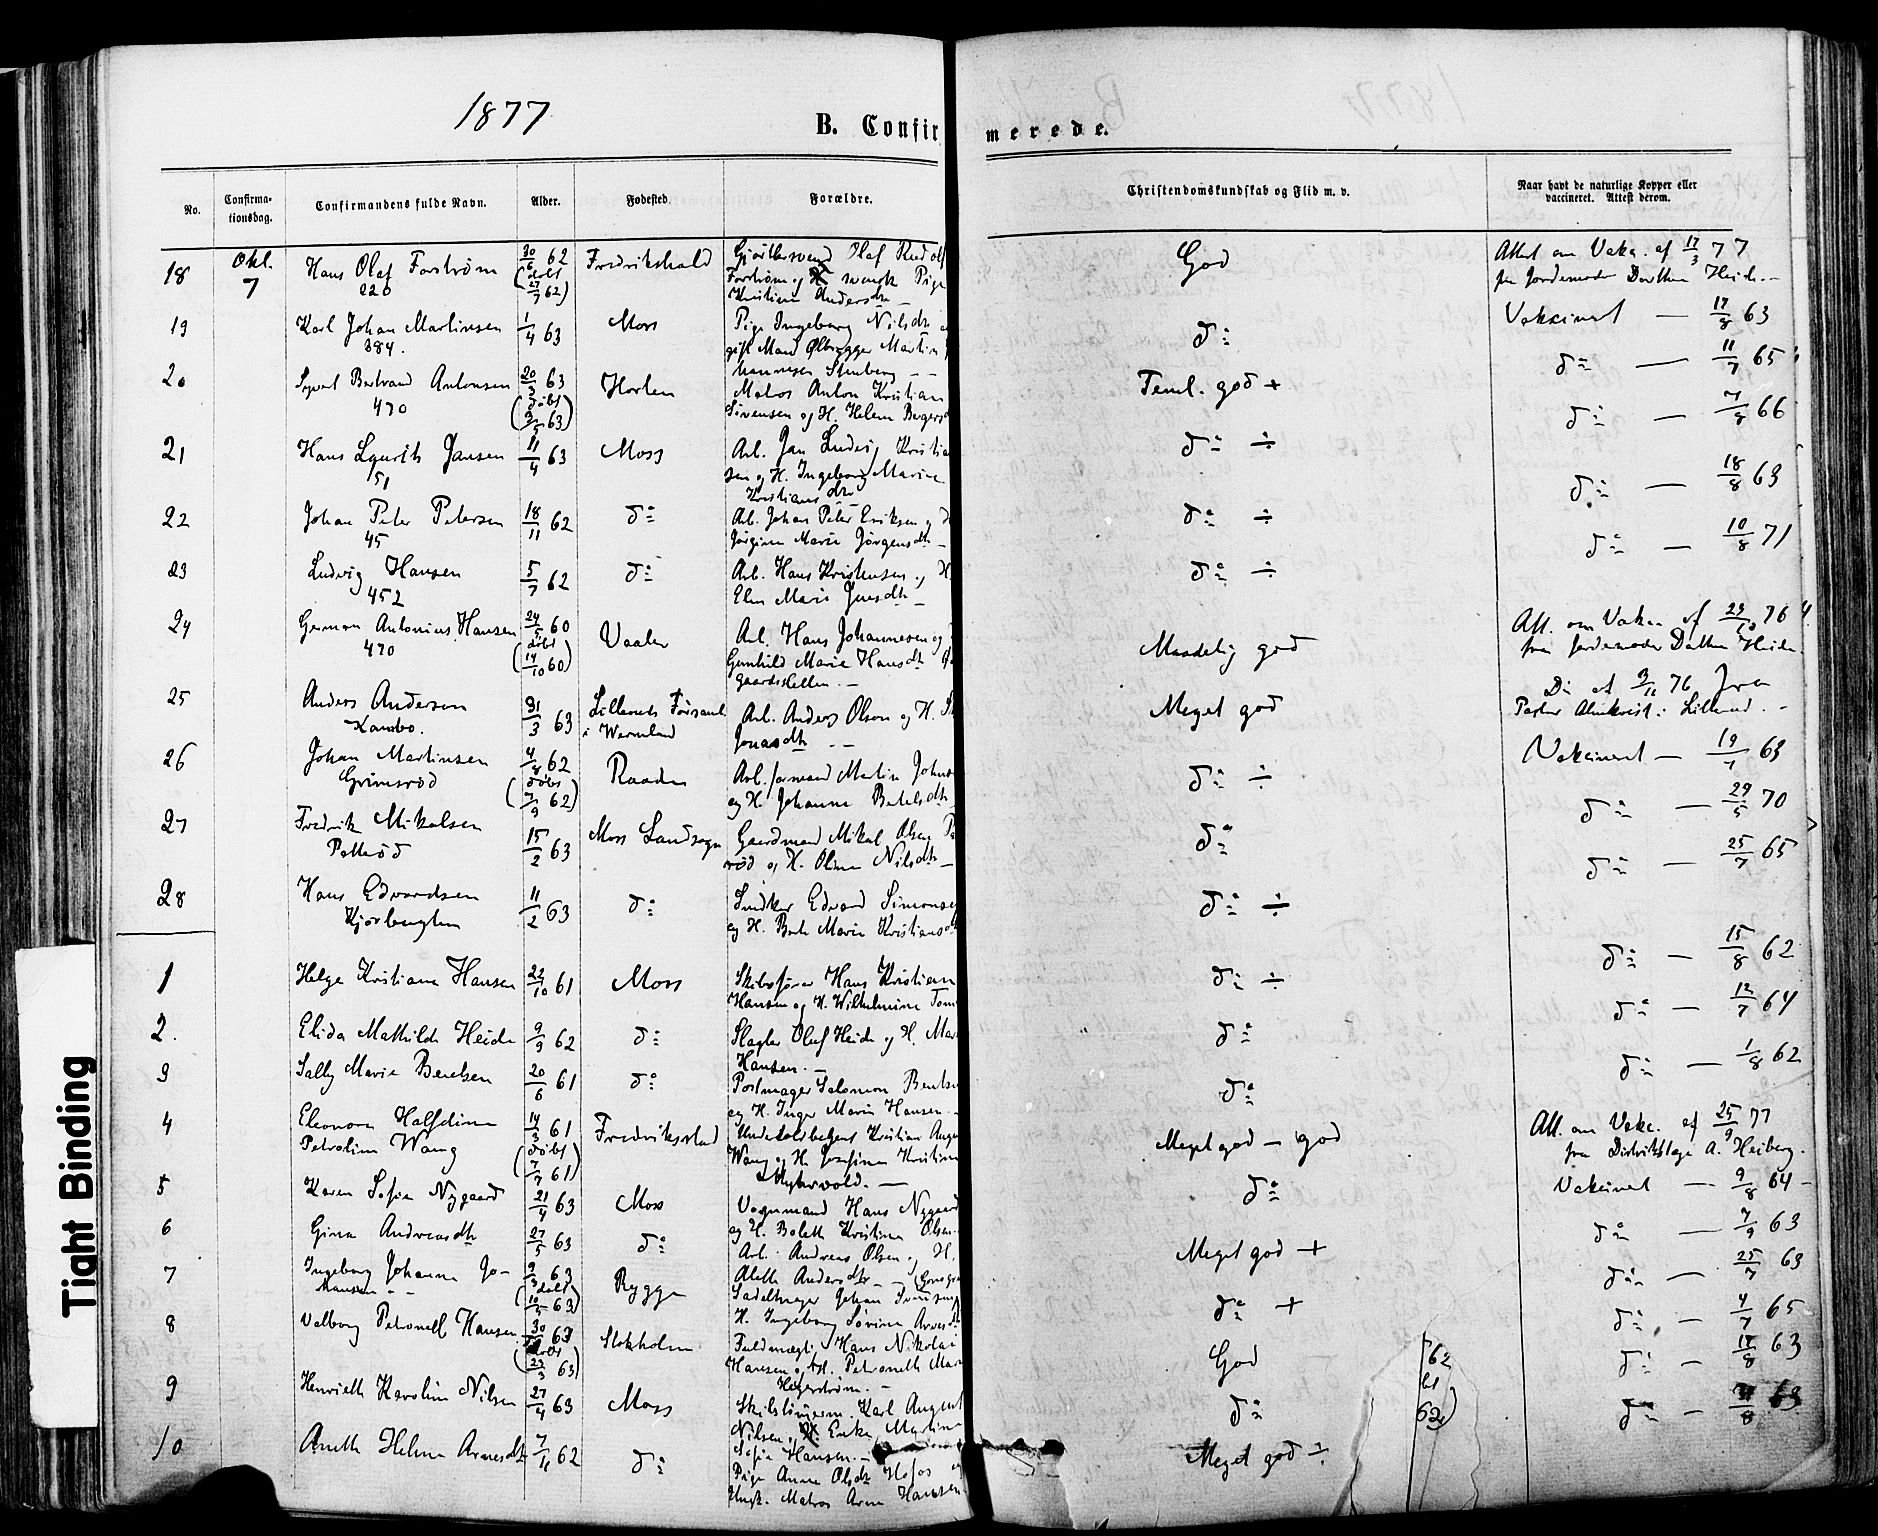 1877
B. Confir
merede.
No.
Confirma-
tionsdag.
Confirmandens fulde Navn.
Alder.
Fødested.
Forældre.
Christendomskundskab og Flid m. v.
Naar havt de naturlige Kopper eller
vaccineret. Attest derom.
18
Okt.
7
Hans Olaf Forstrøm
220
30/6 62
(døbt
27/7 62)
Fredrikshald
Gjørtlersvend Olaf Rudolf
Forstrøm og svensk Pige
Kristine Andersdtr —
God
Attest om Vaks. af 17/3 77
fra Jordemoder Dorthea Heide —
19
Karl Johan Martinsen
384.
1/4 63
Moss
Pige Ingeborg Nilsdtr
gift Mand Ølbrygger Martin
Stenberg — —
do
Vakcineret — 17/8 63
20
Bertrand Antonsen
470
20/3 63
(døbt
63)
Horten
Matros Anton Kristian
Sørensen og H. Helene
Teml. god +
do — 11/7 65
21
Hans Laurits Jansen
151
11/4 63
Moss
Arb. Jan Ludvig Kristian
sen og H. Ingeborg Marine
Kristiansdtr
do ÷
do — 66
22
Johan Peter Petersen
45
18/11 62
do
Arb. Johan Peter Eriksen og
Jørgine Marie Jørgensdtr —
do ÷
do — 18/8 63
23
Ludvig Hansen
452
5/7 62
do
Arb. Hans Kristensen og H
Marie
do ÷
do — 10/8 71
24
Herman Antonius Hansen
470
24/5 60
(døbt
14/10 60)
Vaaler
Arb. Hans Johannesen og
Gunhild Marie Hansdtr
Maadelig god
Att. om Vaks. af 76
fra Jordemoder Heide
25
Anders Andersen
Kambo.
31/3 63
i Wermland
Arb. Anders Olsen og H.
Jonasdtr — —
Meget god
Do af 9/11 76 fra
Pastor Almkvist i
26
Johan Martinsen
Grimsrød
4/8 62
(døbt
7/9 62)
Raade
Arb.formand Martin
og H. Johanne
do ÷
Vakcineret — 63
27
Fredrik Mikalsen
Patterød
15/2 63
Moss Landsogn
Gaardmand Mikal Olsen
rød og H. Oline Nilsdtr —
do
do — 29/5 70
28
Hans Edvardsen
11/2 63
do
Snedker Edvard Simonsen
og H. Marie Kristiansdtr
do ÷
do — 25/7 65
1
Helga Kristiane Hansen
22/10 61
Moss
Skibsfører Hans Kristian
Hansen og H. Wilhelmine
do ÷
do — 15/8 62
2.
Elida Mathilde Heide
9/9 62
do
Slagter Oluf Heide og H.
Hansen. —
do
do — 12/7 64
3
Sally Marie Bentsen
20/6 61
do
Salomon Bentsen
og H. Inger Marie Hansen. —
do
do — 1/8 62
4
Eleonora Halfdine
Petroline Wang
14/3 61
(døbt
7/7 61)
Fredrikstad
Kristian August
Wang og H. Josefine Kristine
Myhrvold. —
Meget god — god
Att. om Vaks. af 25/9 77
fra Distriktslæge A. Heiberg.
5
Karen Sofie Nygaard
21/4 63
Moss
Vognmand Hans Nygaard
og H. Boleth Kristine Olsen
do
Vakcineret — 9/8 64 —
6
Gina Andreasdtr
27/5 63
do
Arb. Andreas Olsen og H.
Alette Andersdtr —
Meget god +
do — 7/9 63
7
Ingeborg Johanne Jo-
hansen — —
9/3 63
(døbt
10/5 63)
Rygge
Sadelmager Johan
H. Ingeborg
do +
do — 25/7 63
8
Valborg Petronell Hansen
30/1 63
(døbt
23/3 63)
Stokholm
Fuldmægt. Hans Nikolai
Hansen og H. Petronelle
God
do — 4/7 65
9
Henriette Karoline Nilsen
27/4 63
Moss
Karl August
Nilsen
Sofie Hansen. —
do
do — 18/8 63
10
Anette Helene Arnesdtr
7/11 62
do
Pige Anne Olsdtr
Ungk. Matros Arne Hansen
Meget god ÷
do — 63
62
bt
62)
Tight Binding